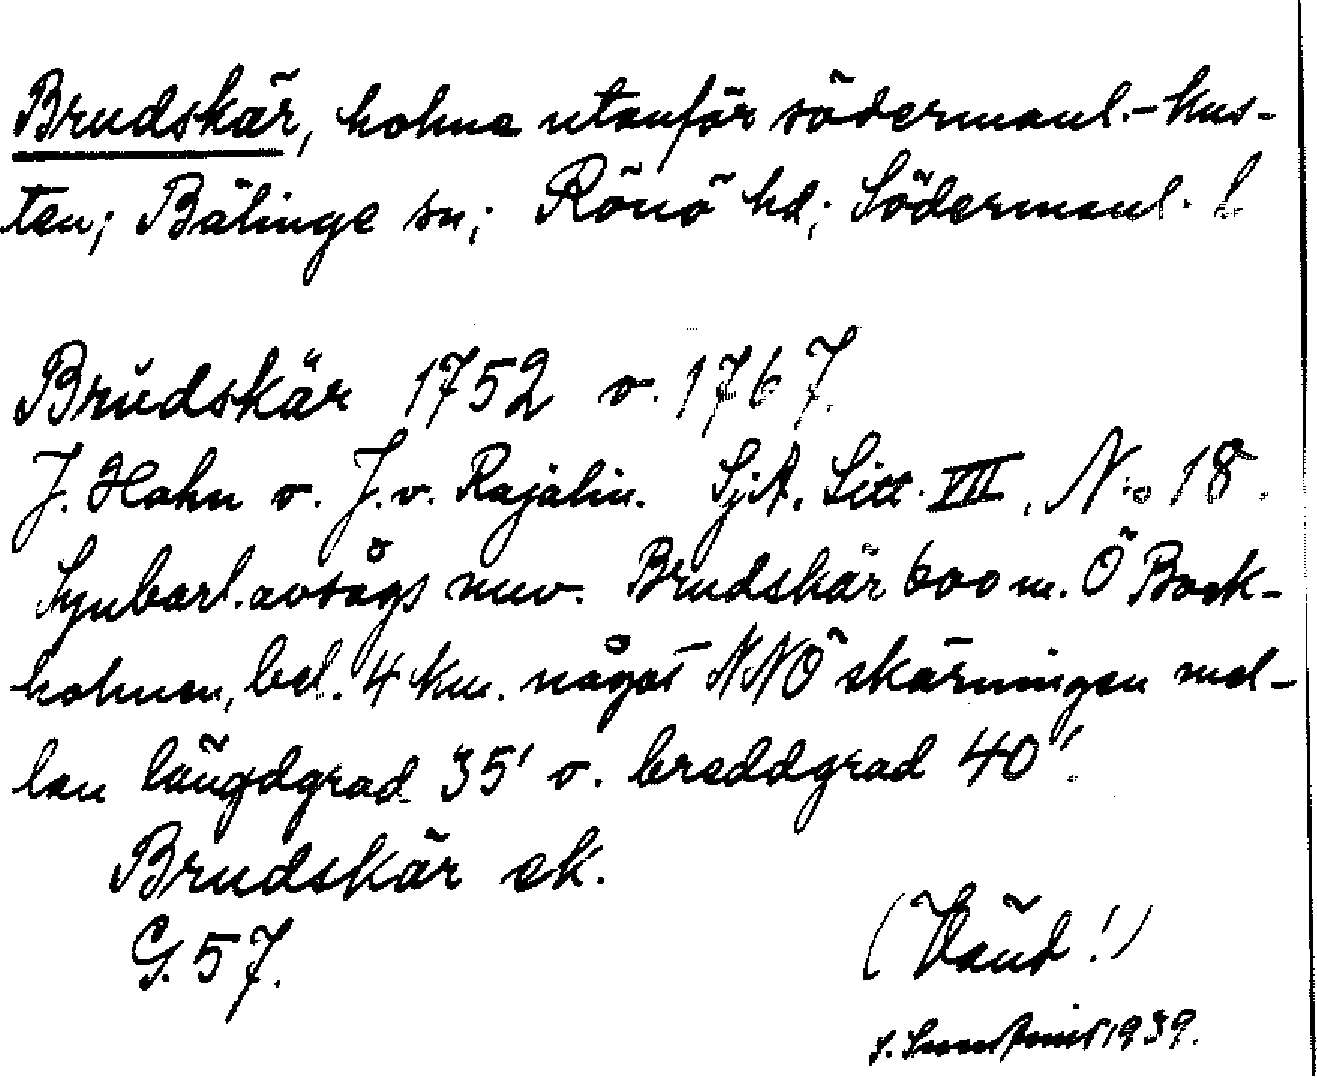 Brudskär, holme utanför södermanl.-kus-
ten; Bälinge sn; Rönö hd; Södermanl. l
Brudskär 1752 o. 1767.
J. Hahn o. J. v. Rajalin. SjA. Litt. VII, N:o 18.
Synbarl. avsågs nuv. Brudskär 600 m. Ö Bock-
holmen, bel. 4 km. något NNÖ skärningen mel-
lan längdgrad 35' o. breddgrad 40'.
Brudskär ek.
G. 57.
(Vänd!)
1939.